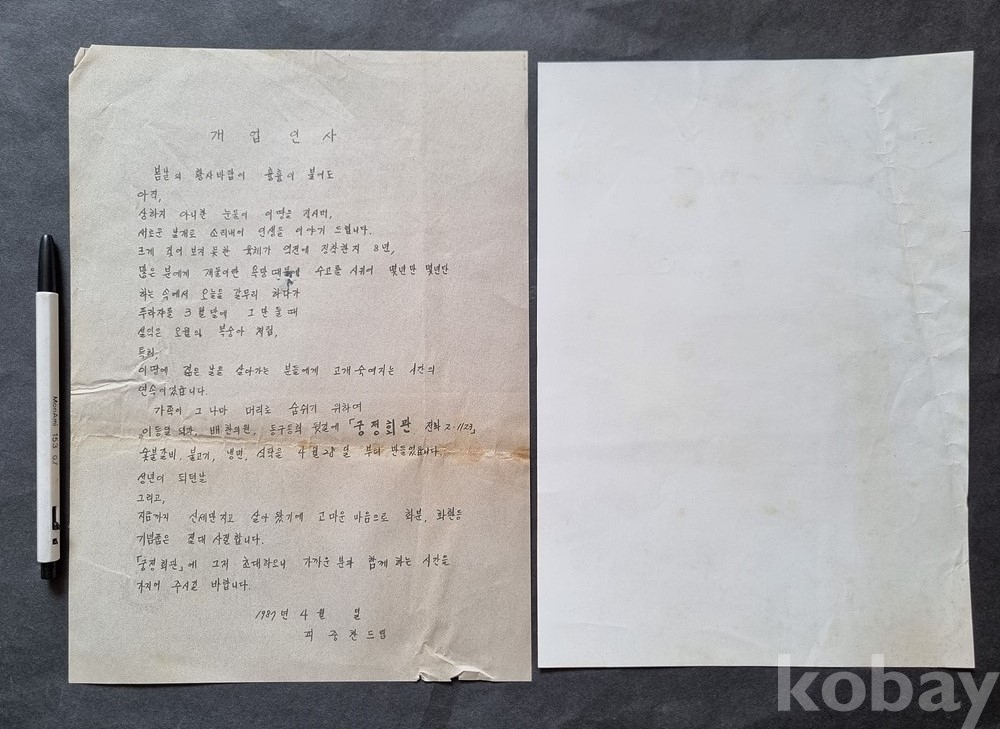 개 업 인 사
봄날의 황사바람이 불어도
아직,
상하지 아니한 눈들이
서로운 날개로 소리내어 인생을 이야기 드립니다.
크게 보지 못한 육체가 정착한지 8년,
많은 분에게 수고를 시키어 몇년만 몇년만
하는 속에서 오늘을 갈무리 하다가
3월달에 그만 둘때
설익은 오월의 복숭아 처럼,
특히,
이땅에 젊은 날을 살아가는 분들에게 고개숙여지는 시간의
연속이었습니다.
가족이 그나마 머리로 숨쉬기 위하여
배한의원, 동구등회 뒷길에 「궁정회관 전화 2-1123」
숯불갈비, 불고기, 냉면, 식탁을 4월28일 부터 만들었습니다.
성년이 되던날
그리고,
지금까지 신세만지고 살아 왔기에 고마운 마음으로 화분, 화환등
기념품은 절대 사절합니다.
「궁정회관」에 그저 초대하오니 가까운 분과 함께 하는 시간을
가지어 주시길 바랍니다.
1987년 4월 일
드림
MonAmi 153 0.7
kobay